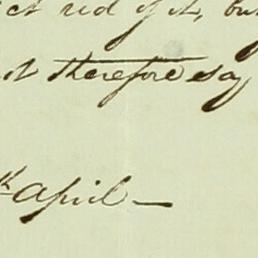 rid of it, bu
therefore say
th April —